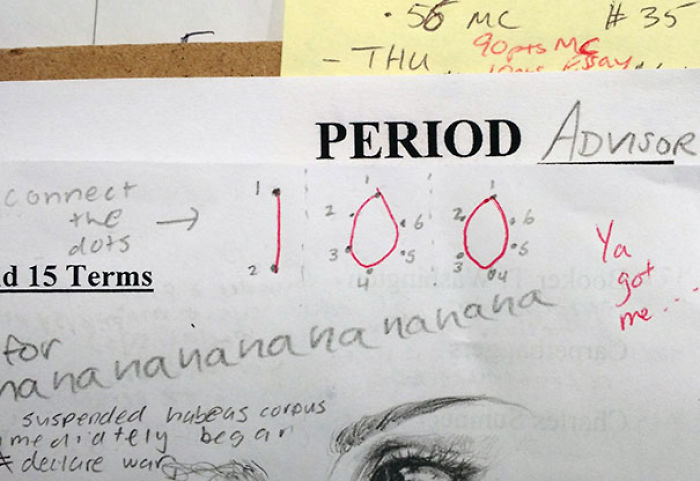 · 56 MC # 35
- THU 90pts MC
Essay
PERIOD ADVISOR
connect
the
dots
1
2
1
2 6
3 5
4
1
2 6
3 5
4
Ya
got
me...
d 15 Terms
for
nanananananananana
suspended habeas corpus
mediately began
declare war